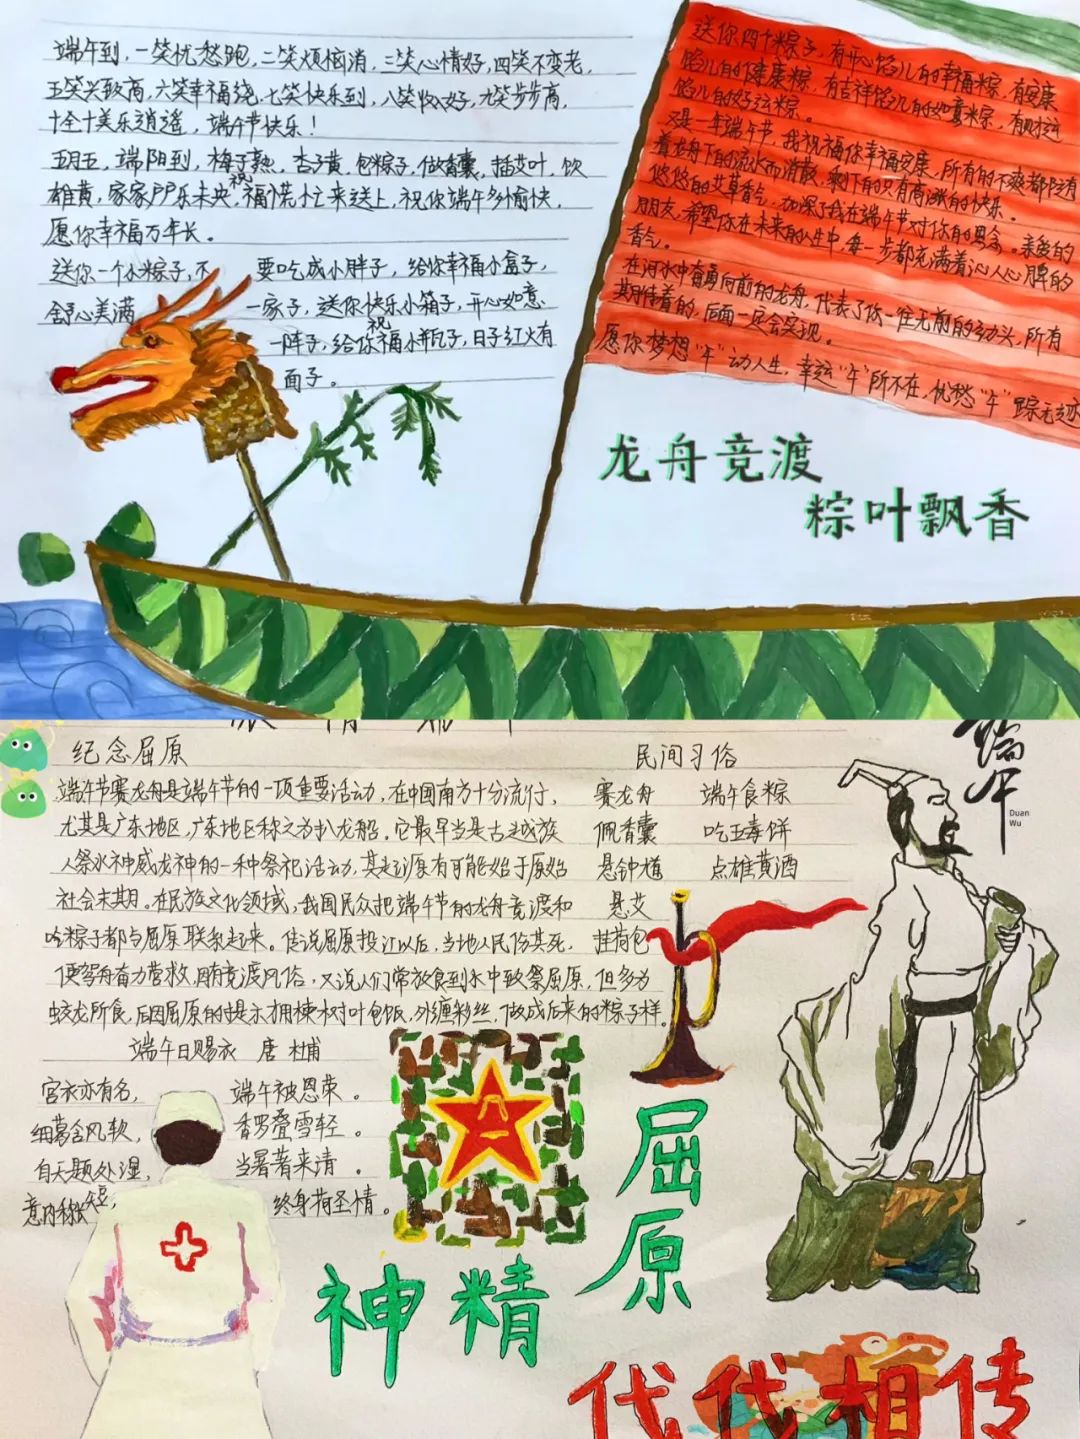 端午到，一笑忧愁跑，二笑烦恼消，三笑心情好，四笑不变老，
五笑兴致高，六笑幸福绕，七笑快乐到，八笑收入好，九笑步步高，
十全十美乐逍遥，端午节快乐！
五月五，端阳到，梅子熟，杏子黄，包粽子，做香囊，插艾叶，饮
雄黄，家家户户乐未央，祝福慌忙来送上，祝你端午多愉快，
愿你幸福万年长。
送你一个小粽子，不要吃成小胖子，给你幸福小盒子，
舒心美满一家子，送你快乐小箱子，开心如意
一阵子，给你祝福小瓶子，日子红火有
面子。
送你四个粽子，有开心馅儿的幸福粽，有安康
馅儿的健康粽，有吉祥馅儿的如意粽，有财运
馅儿的好运粽。
又是一年端午节，我祝福你幸福安康，所有的不爽都随
着龙舟下的流水而消散，剩下的只有高涨的快乐。
悠悠的艾草香气，加深了我在端午节对你的思念。亲爱的
朋友，希望你在未来的人生中，每一步都充满着沁人心脾的
香气。
在河水中奋勇向前的龙舟，代表了你一往无前的劲头，所有
期待着的，后面一定会实现。
愿你梦想“午”动人生，幸运“午”所不在，忧愁“午”踪无迹
龙舟竞渡
粽叶飘香
纪念屈原
端午节赛龙舟是端午节的一项重要活动，在中国南方十分流行，
尤其是广东地区，广东地区称之为扒龙船。它最早当是古越族
人祭水神或龙神的一种祭祀活动，其起源有可能始于原始
社会末期。在民族文化领域，我国民众把端午节的龙舟竞渡和
吃粽子都与屈原联系起来。传说屈原投江以后，当地人民伤其死，
便驾舟奋力营救，因有竞渡风俗，又说人们常放食到水中致祭屈原，但多为
蛟龙所食，后因屈原的提示才用楝树叶包饭，外缠彩丝，做成后来的粽子样。
民间习俗
赛龙舟 端午食粽
佩香囊 吃五毒饼
悬钟馗 点雄黄酒
悬艾
挂荷包
端午
Duan
Wu
端午日赐衣 唐 杜甫
宫衣亦有名，端午被恩荣。
细葛含风软，香罗叠雪轻。
自天题处湿，当暑著来清。
意内称长短，终身荷圣情。
屈原
神精
代代相传